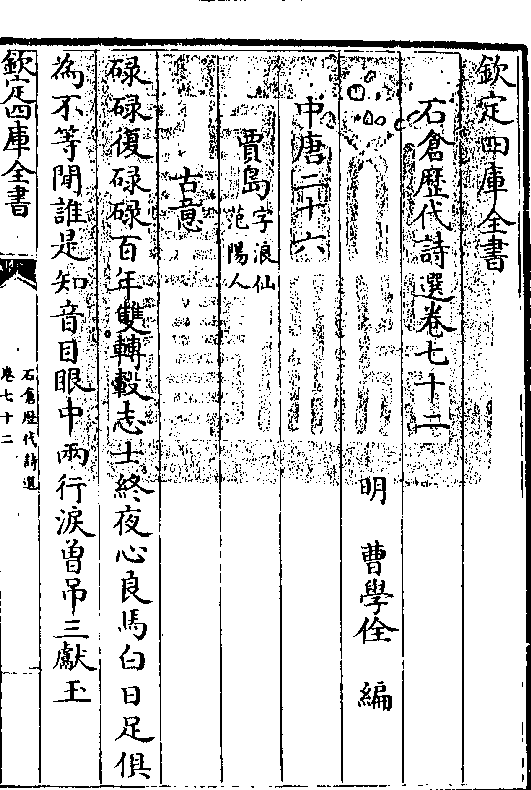 欽定四庫全書
石倉歴代詩選卷七十二
明　曹學佺　編
中唐二十六
賈島字浪仙范陽人
古意
碌碌復碌碌百年雙轉轂志士終夜心良馬白日足俱
為不等閒誰是知音目眼中兩行淚曾吊三獻玉
欽定四庫全書
石倉歴代詩選
卷七十二